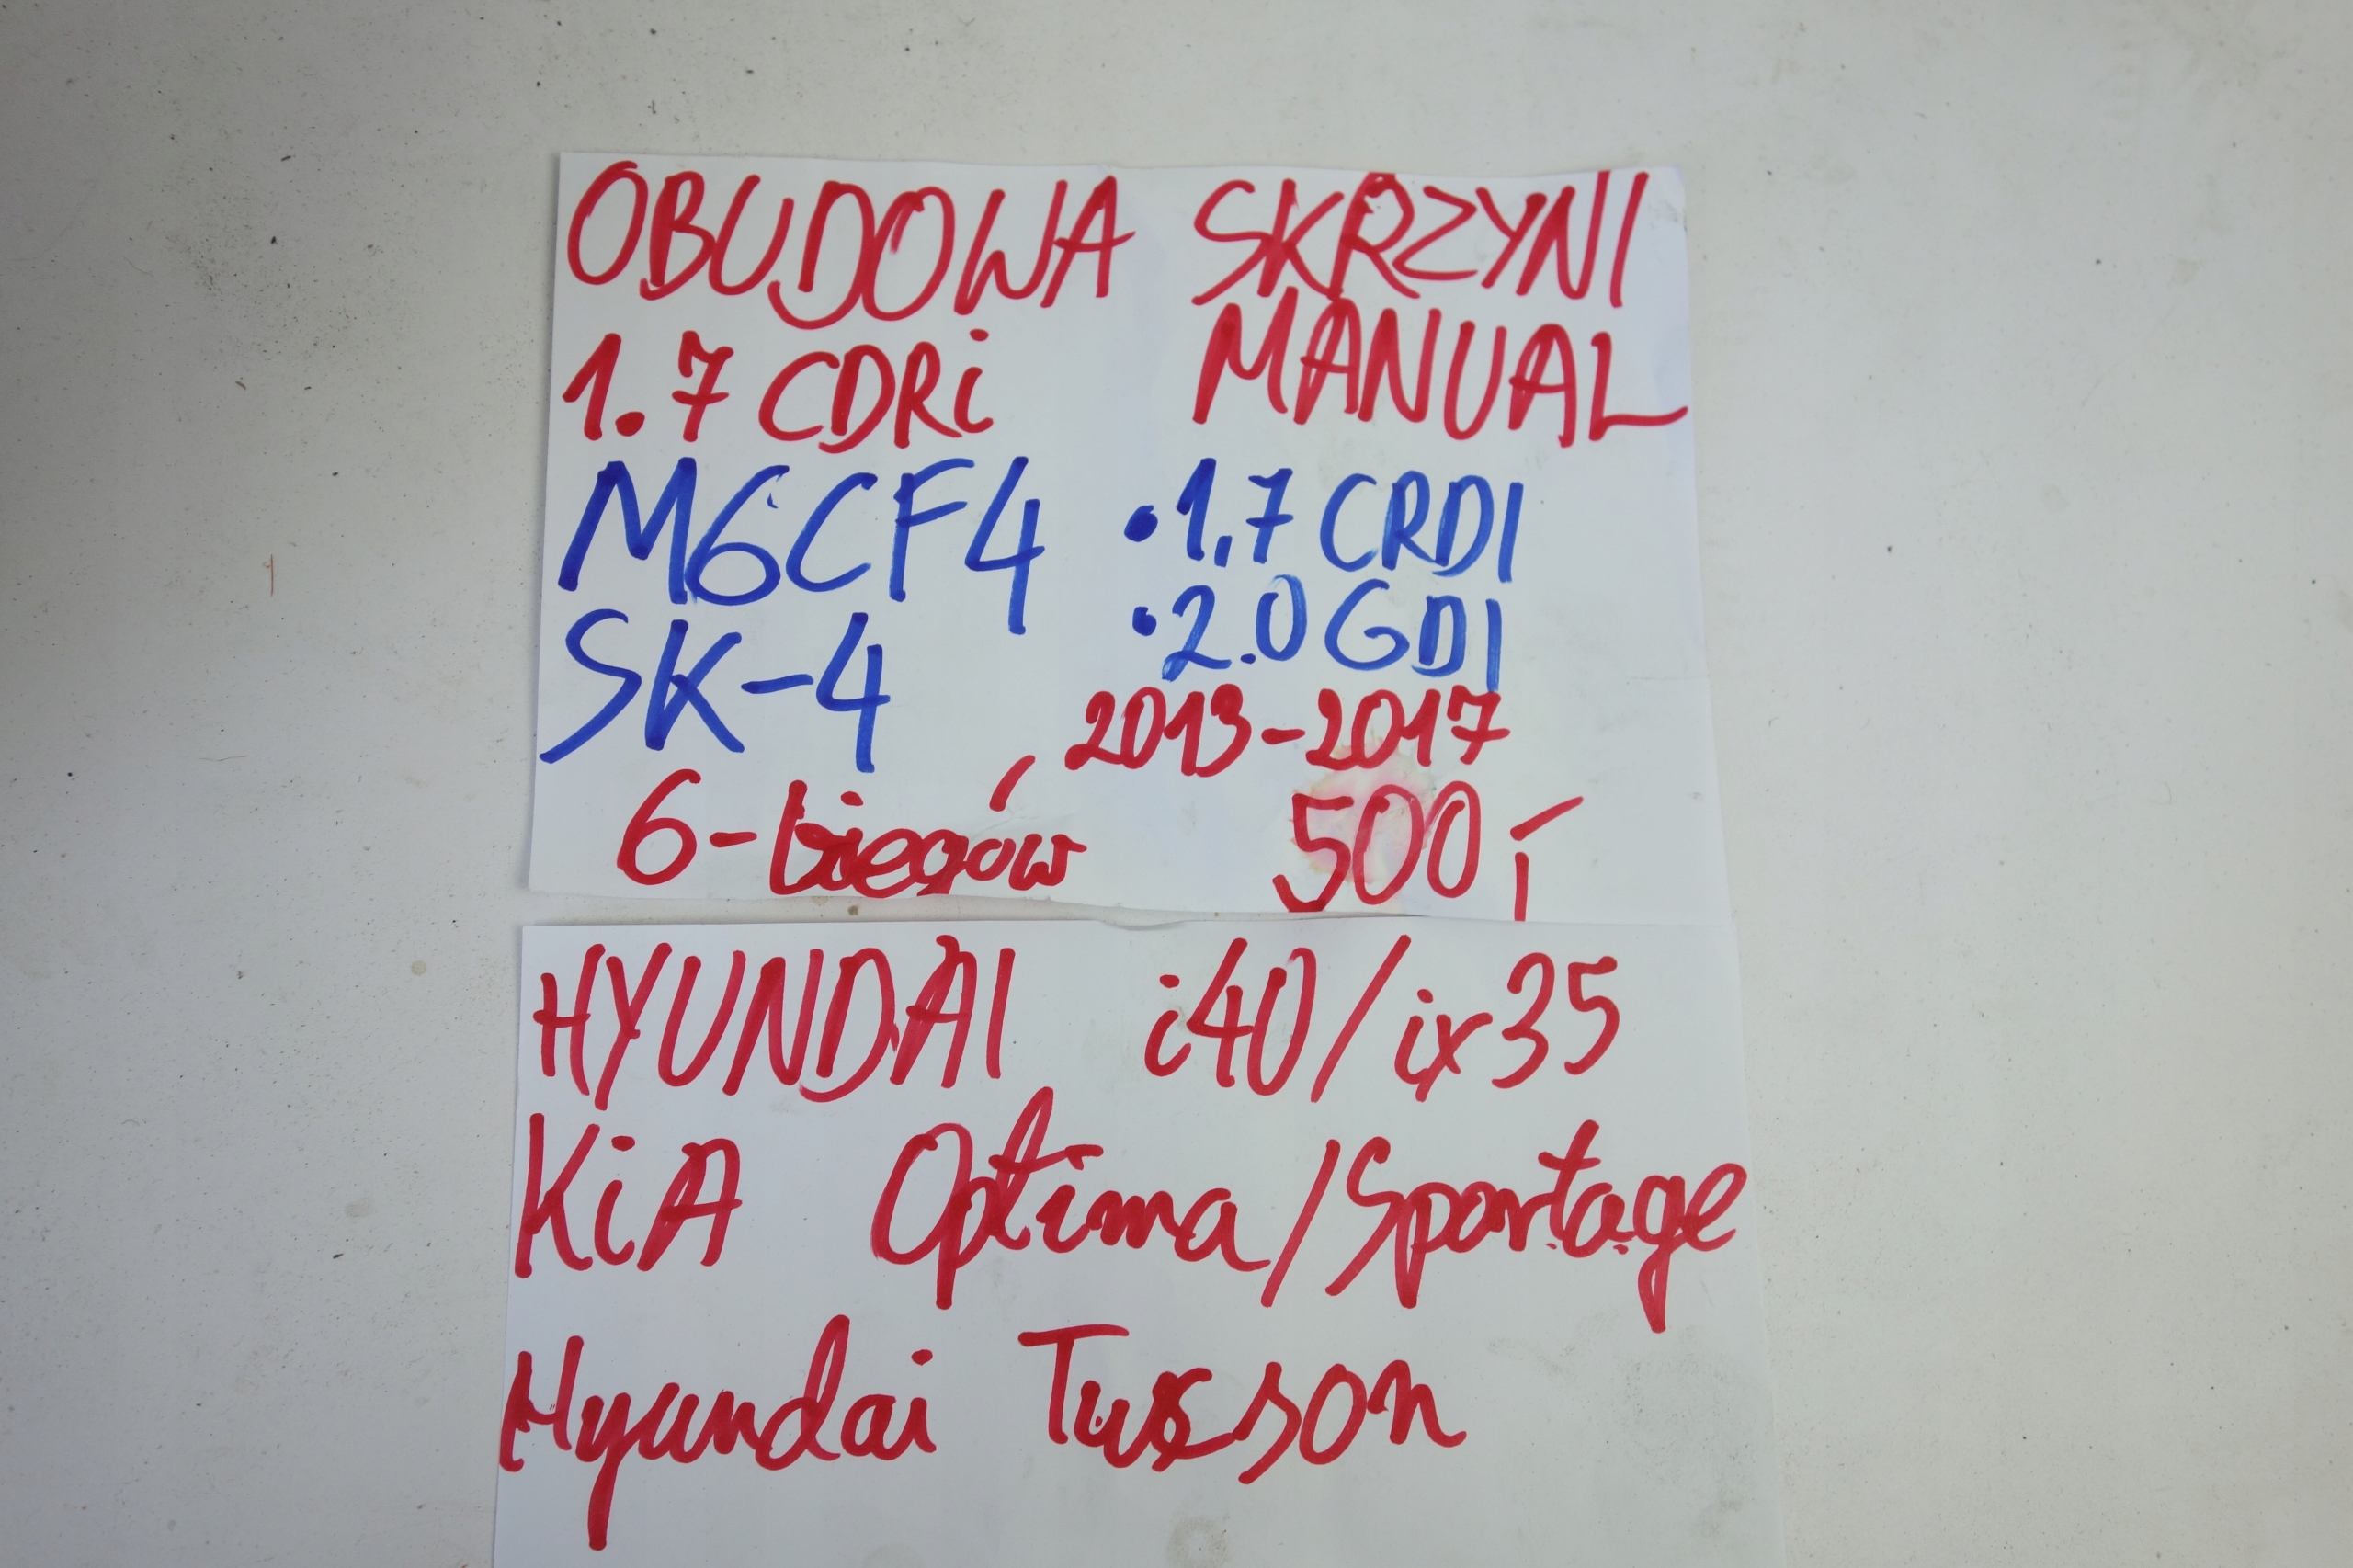 OBUDOWA SKRZYNI
1.7 CDRi MANUAL
M6CF4 •1.7 CRDI
•2.0 GDI
SK-4 2013-2017
6-biegów 500,-
HYUNDAI i40/ix35
KiA Optima/Sportage
Hyundai Tucson